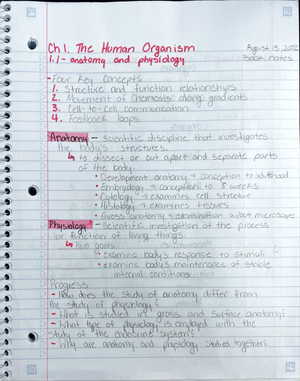 Ch 1. The Human Organism
August 15, 2022
1.1 - anatomy and physiology
Book notes
- Four Key Concepts
1. Structure and function relationships
2. Movement of chemicals along gradients
3. Cell-to-cell communication
4. Feedback loops
Anatomy - scientific discipline that investigates
the body's structures.
↳ to dissect or cut apart and separate parts
of the body.
• Development anatomy → conception to adulthood
• Embryology → conception to 8 weeks
• Cytology → examines cell structure
• Histology → examines tissues
• Gross anatomy → examination w/out microscope
Physiology - Scientific investigation of the process
or function of living things
↳ Two goals:
• examine body's response to stimuli
• examine body's maintenance of stable
internal conditions
Progress
- How does the study of anatomy differ from
the study of physiology?
- What is studied in gross and surface anatomy?
- What type of physiology is employed with the
study of the endocrine system?
- Why are anatomy and physiology studied together